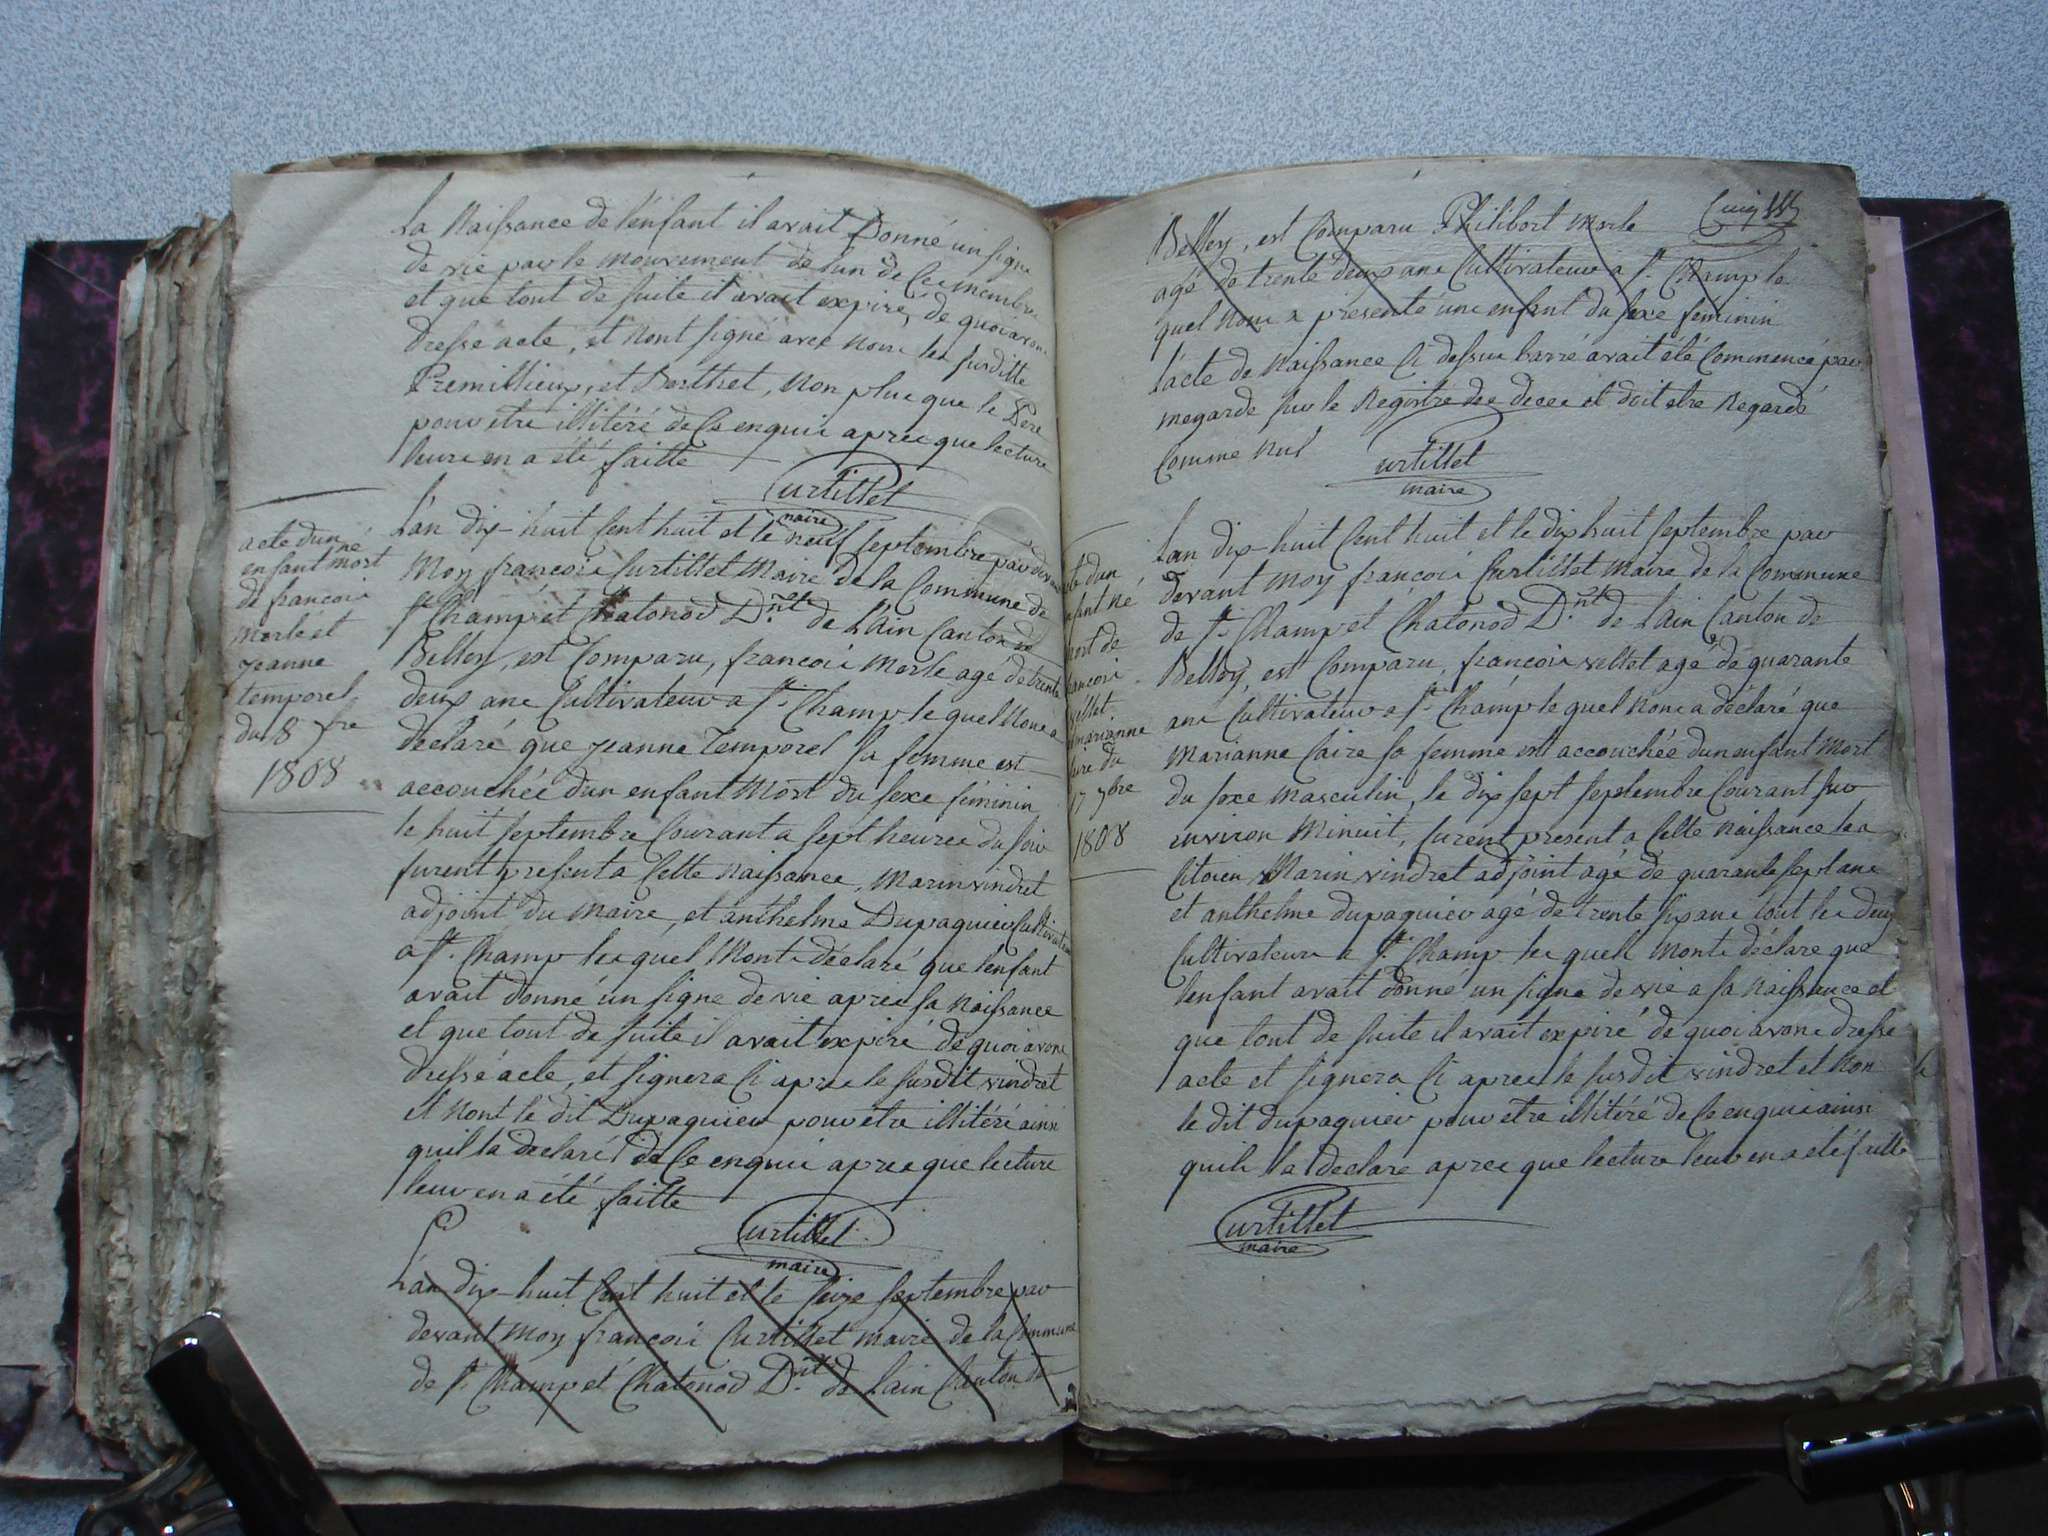 La Naissance de lenfant il avait Donné un signe
de vie par le mouvement de lun de Ces membres
et que tout de suite it avait expiré, de quoi avons
dresse acte, et Nont signé avec Nous les susditte
Premillieux, et Berthet, Non plus que le Pere
pour etre illitéré de Ce enquis apres que lecture
leurs en a été faitte
Curtillet
maire
acte dun
enfant mort né
de francois
Merle et
jeanne
temporel
du 8 7bre
1808
Lan dix-huit Cent huit et le neuf septembre par devant
Moy francois Curtillet Maire de la Commune de
St Champ et Chatonod D.nt de LAin Canton de
Belley, est Comparu, francois Merle agé de trente
deux ans Cultivateur a St. Champ le quel Nous a
déclaré que jeanne Temporel sa femme est
accouchée dun enfant Mort du sexe féminin
le huit septembre Courant a sept heures du soir
furent present a Cette Naissance, Marin vindret
adjoint du Maire, et anthelme Dupaquier Cultivateur
a St. Champ les quel Mont déclaré que lenfant
avait donné un signe de vie apres sa Naissance
et que tout de suite il avait expiré de quoi avons
dressé acte, et signera Ci apres le susdit vindret
et Nont le dit Dupaquier pour etre illitéré ainsi
quil la déclaré de Ce enquis apres que lecture
leur en a été faitte
Curtillet
maire
Lan dix-huit Cent huit et le seize septembre par
devant Moy francois Curtillet maire de la Commune
de St Champ et Chatonod D.nt de Lain Canton de
Belley, est Comparu Philibert Merle
agé de trente deux ans Cultivateur a St. Champ le
quel Nous a présenté une enfant du sexe féminin
Lacte de Naissance Ci dessus barré avait été Commencé par
megarde sur le Registre des deces et doit etre Regardé
Comme Nul
Curtillet
maire
dun
enfant né
mort de
francois
vellet
marianne
du
17 7bre
1808
Lan dix-huit Cent huit et le dix huit septembre par
devant Moy francois Curtillet Maire de la Commune
de St. Champ et Chatonod D.nt de Lain Canton de
Belley, est Comparu, francois vellet agé de quarante
ans Cultivateur a St. Champ le quel Nous a déclaré que
Marianne Caire sa femme est accouchée dun enfant Mort
du sexe Masculin, le dix sept septembre Courant sur
environ Minuit, furent present a Cette Naissance les
Citoien Marin vindret adjoint agé de quarante sept ans
et anthelme dupaquier agé de trente six ans tout les deux
Cultivateurs a St. Champ les quels Mont déclare que
lenfant avait donné un signe de vie a sa Naissance et
que tout de suite il avait expiré de quoi avons dresse
acte et signera Ci apres le susdit vindret et Non
le dit dupaquier pour etre illitéré de Ce enquis ainsi
quils la déclare apres que lecture leur en a été faitte
Curtillet
maire